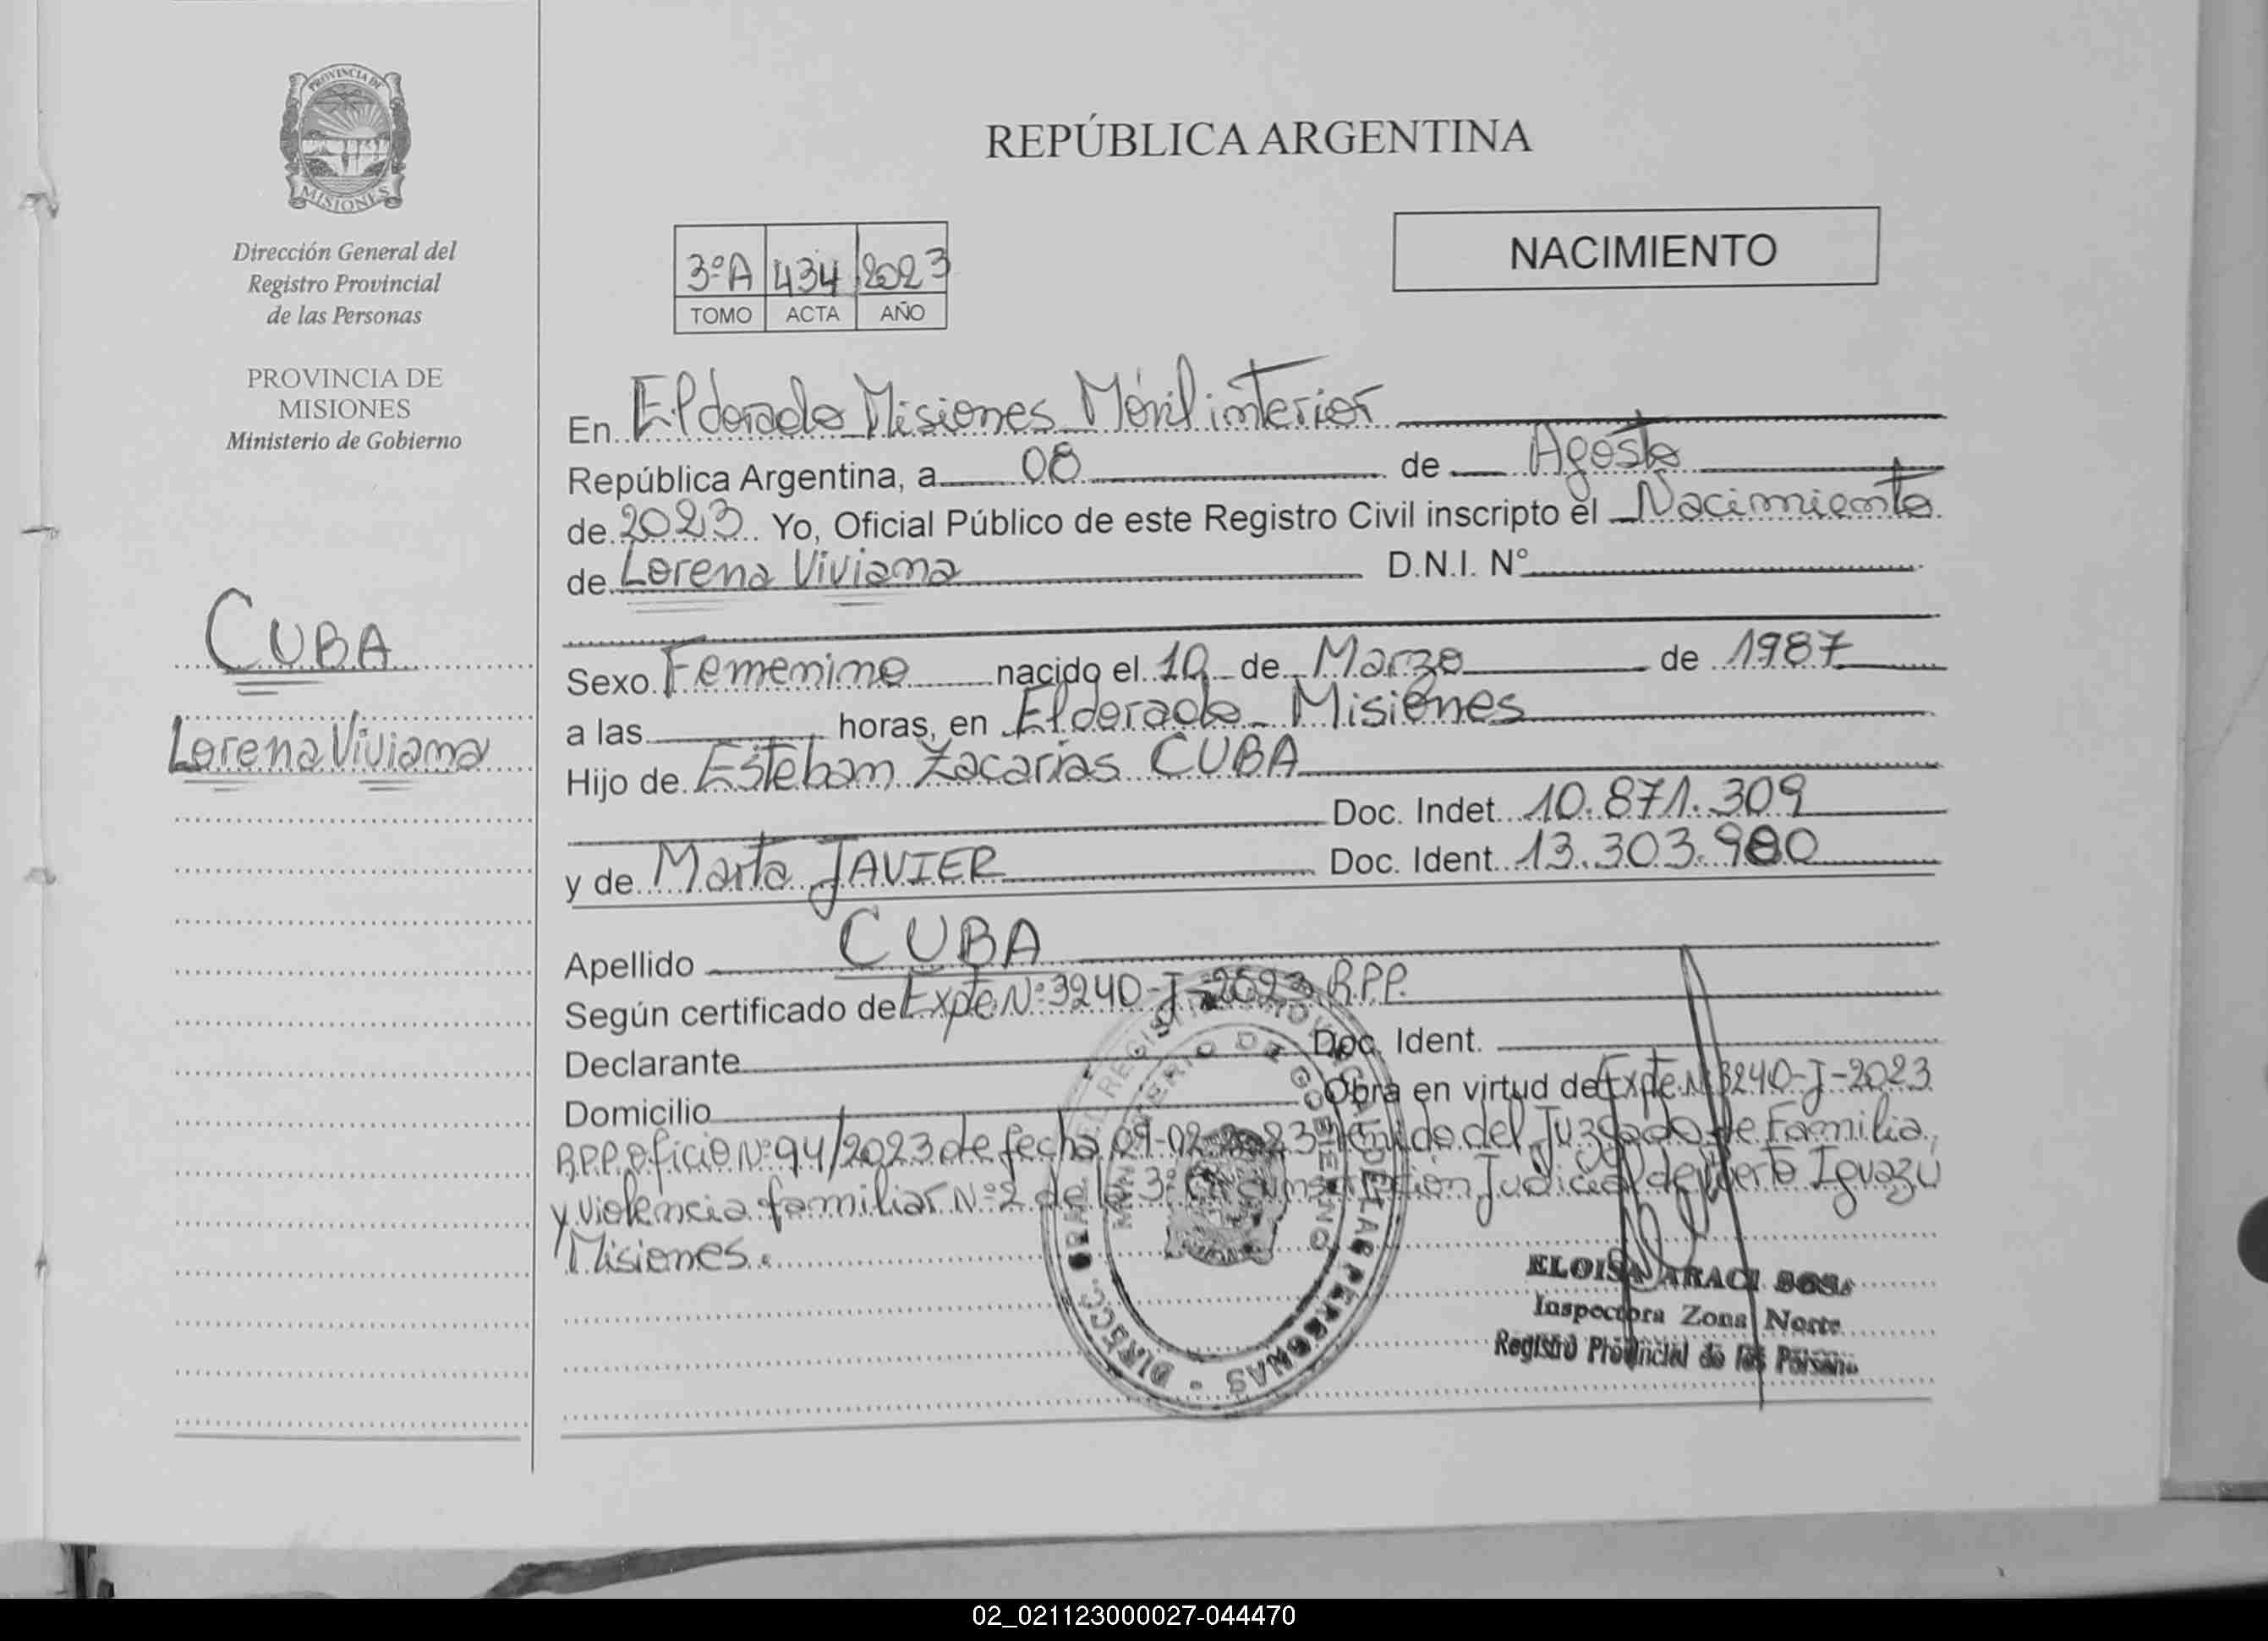 PROVINCIA DE
MISIONES
Dirección General del
Registro Provincial
de las Personas
PROVINCIA DE
MISIONES
Ministerio de Gobierno
CUBA
Lorena Viviana
REPÚBLICA ARGENTINA
NACIMIENTO
3ºA 434 2023
TOMO ACTA AÑO
En Eldorado Misiones Móvil interior
República Argentina, a 08 de Agosto
de 2023 Yo, Oficial Público de este Registro Civil inscripto el Nacimiento
de Lorena Viviana D.N.I. Nº
Sexo Femenino nacido el 10 de Marzo de 1987
a las horas, en Eldorado Misiones
Hijo de Esteban Zacarias CUBA
Doc. Indet. 10.871.309
y de Marta JAVIER Doc. Ident. 13.303.980
Apellido CUBA
Según certificado de Expte Nº 3240-J-2023 R.P.P.
Declarante Doc. Ident.
Domicilio Obra en virtud de Expte. Nº 3240-J-2023
R.P.P. Oficio Nº 94/2023 de fecha 09-02-2023 del Juzgado de Familia
y Violencia familiar Nº 2 de la 3º Circunscripción Judicial de Puerto Iguazú
Misiones.
DIRECC. GRAL. DEL REGISTRO PROVINCIAL DE LAS PERSONAS
MINISTERIO DE GOBIERNO
ELOISA ARACI SOSA
Inspectora Zona Norte
Registro Provincial de las Personas
02_021123000027-044470